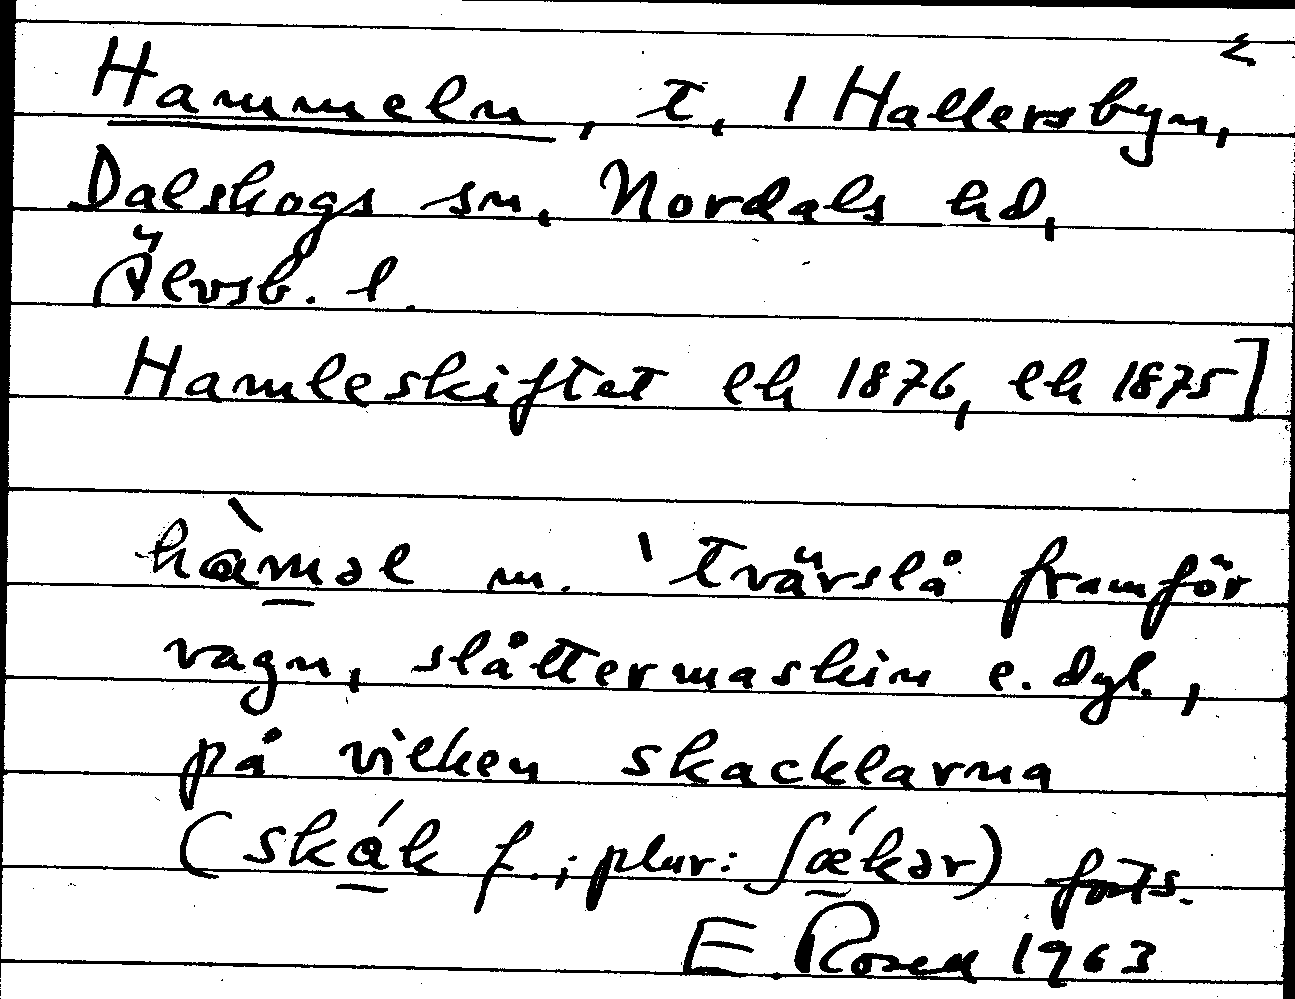 2
Hammeln, t, 1 Hallersbyn,
Dalskogs sn, Nordals hd,
Älvsb. l.
Hamleskiftet ek 1876, ek 1875]
hàməl m. 'tvärslå framför
vagn, slåttermaskin e. dyl.,
på vilken skacklarna
(skák f.; plur: ʃǽkər) forts.
E. Rosell 1963